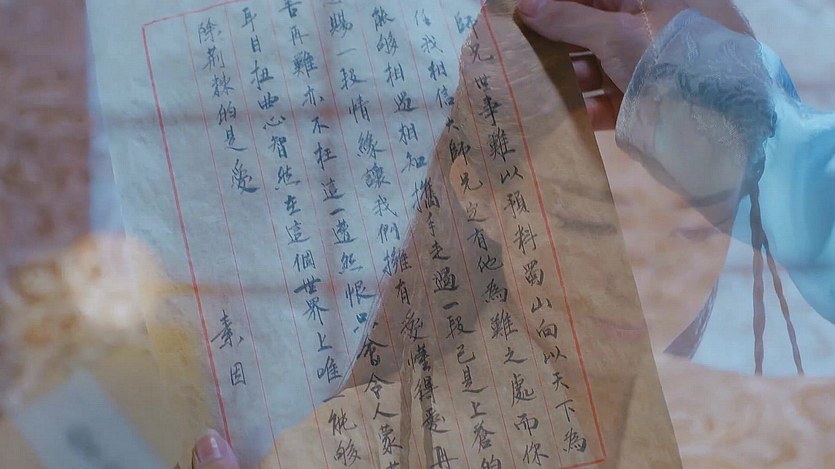 師兄世事難以預料蜀山向以天下為
但我相信大師兄定有他為難之處而你
能夠相遇相知攜手走過一段已是上蒼的
賜一段情緣讓我們擁有愛懂得愛再
苦再難亦不枉這一遭然恨只會令人蒙
耳目扭曲心智然在這個世界上唯一能夠
除荊棘的是愛
素因